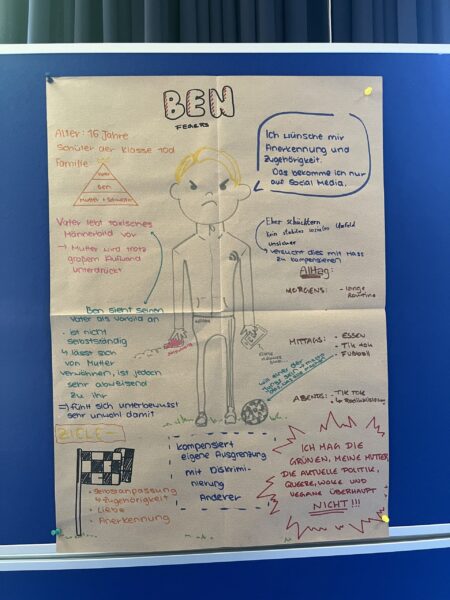 BEN
FEGERS
Alter: 16 Jahre
Schüler der Klasse 10d
Familie:
Vater
Ben
Mutter + Schwester
Vater lebt toxisches
Männerbild vor
→ Mutter wird trotz
großem Aufwand
unterdrückt
Ich wünsche mir
Anerkennung und
Zugehörigkeit.
Das bekomme ich nur
auf Social Media.
Eher schüchtern
kein stabiles soziales Umfeld
unsicher
→ versucht dies mit Hass
zu kompensieren
Alltag:
MORGENS: - lange
Routine
MITTAGS: - ESSEN
- Tik Tok
- Fußball
ABENDS: - TIK TOK
Ben sieht seinen
Vater als Vorbild an
· ist nicht
selbstständig
↳ lässt sich
von Mutter
verwöhnen, ist jedoch
sehr abweisend
zu ihr
=> fühlt sich unterbewusst
sehr unwohl damit
ZIELE
- Selbstanpassung
↳ Zugehörigkeit
- Liebe
- Anerkennung
kompensiert
eigene Ausgrenzung
mit Diskrimi-
nierung
Anderer
ICH MAG DIE
GRÜNEN, MEINE MUTTER,
DIE AKTUELLE POLITIK,
QUEERE, WOKE UND
VEGANE ÜBERHAUPT
NICHT!!!